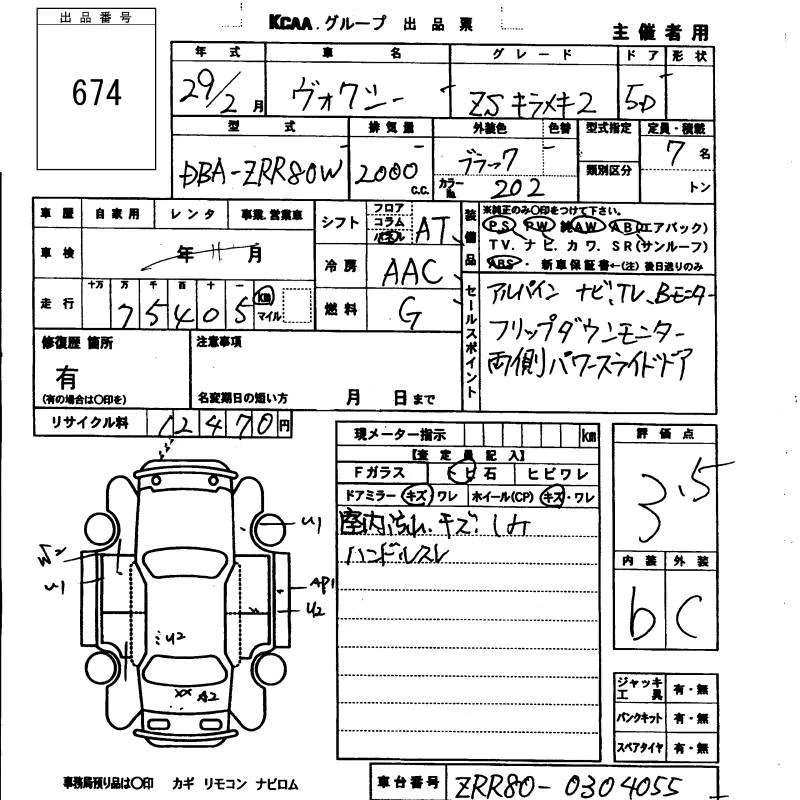 出品番号
674
KCAA.グループ 出品票
主催者用
年式 車名 グレード ドア 形状
29/2月 ヴォクシー ZSキラメキ2 5D
型式 排気量 外装色 色替 型式指定 定員・積載
類別区分
DBA-ZRR80W 2000 c.c. ブラック 7名
カラーNo. 202 トン
車歴 自家用 レンタ 事業.営業車
車検 年 11 月
走行 十万 万 千 百 十 一
75405 km マイル
シフト フロア コラム パネル AT
冷房 AAC
燃料 G
装備品
※純正のみ〇印をつけて下さい。
PS PW 純AW AB(エアバック)
TV. ナビ. カワ. SR(サンルーフ)
ABS. 新車保証書←(注)後日送りのみ
セールスポイント
アルパイン ナビ、TV、Bモニター
フリップダウンモニター
両側パワースライドドア
修復歴 箇所
有
(有の場合は〇印を)
注意事項
名変期日の短い方 月 日まで
リサイクル料 12470円
現メーター指示 km
【査定員記入】
Fガラス トビ石 ヒビワレ
ドアミラー キズ・ワレ ホイール(CP) キズ・ワレ
室内汚れ、キズ、シミ
ハンドルスレ
評価点
3.5
内装 外装
b C
U1
W2
U1
AP1
U2
U2
A2
ジャッキ工具 有・無
パンクキット 有・無
スペアタイヤ 有・無
事務局預り品は〇印 カギ リモコン ナビロム
車台番号 ZRR80-0304055